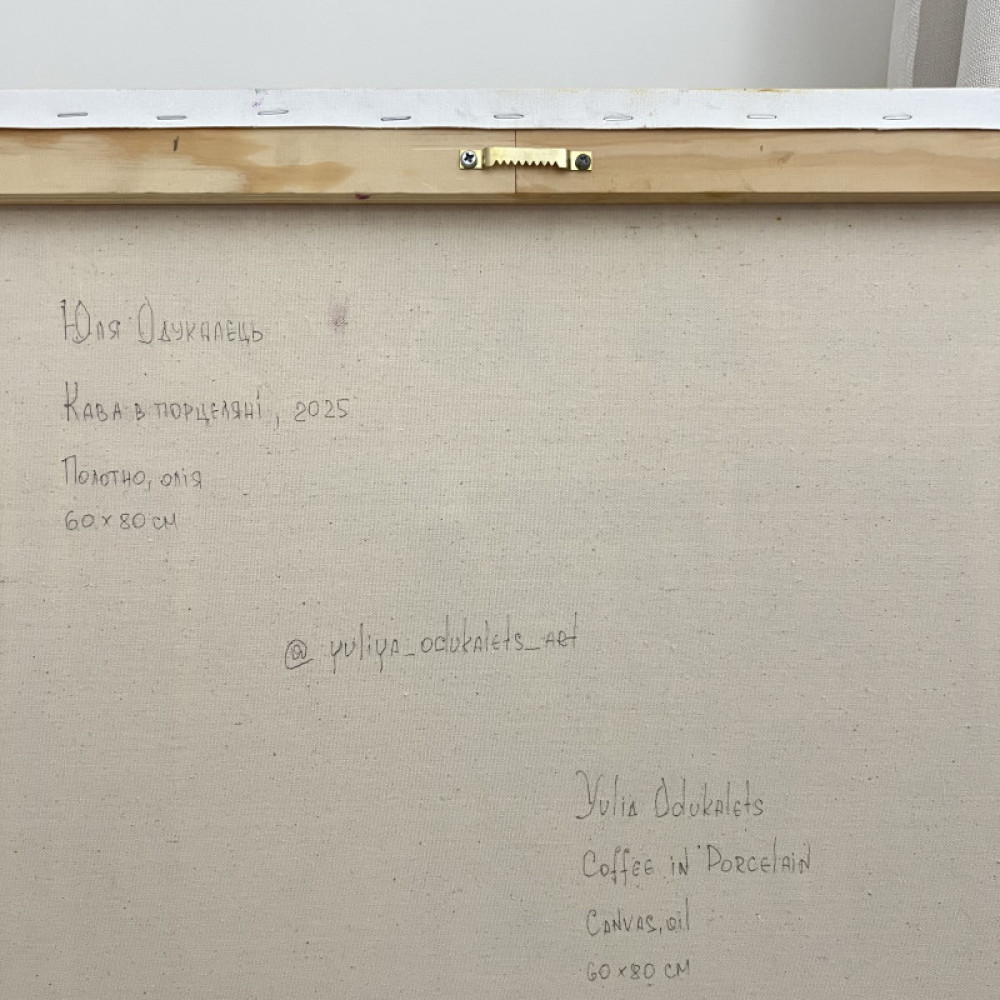 Юля Одукалець
Кава в порцеляні, 2025
Полотно, олія
60 x 80 см
@ yuliya_odukalets_art
Yulia Odukalets
Coffee in Porcelain
Canvas, oil
60 x 80 см